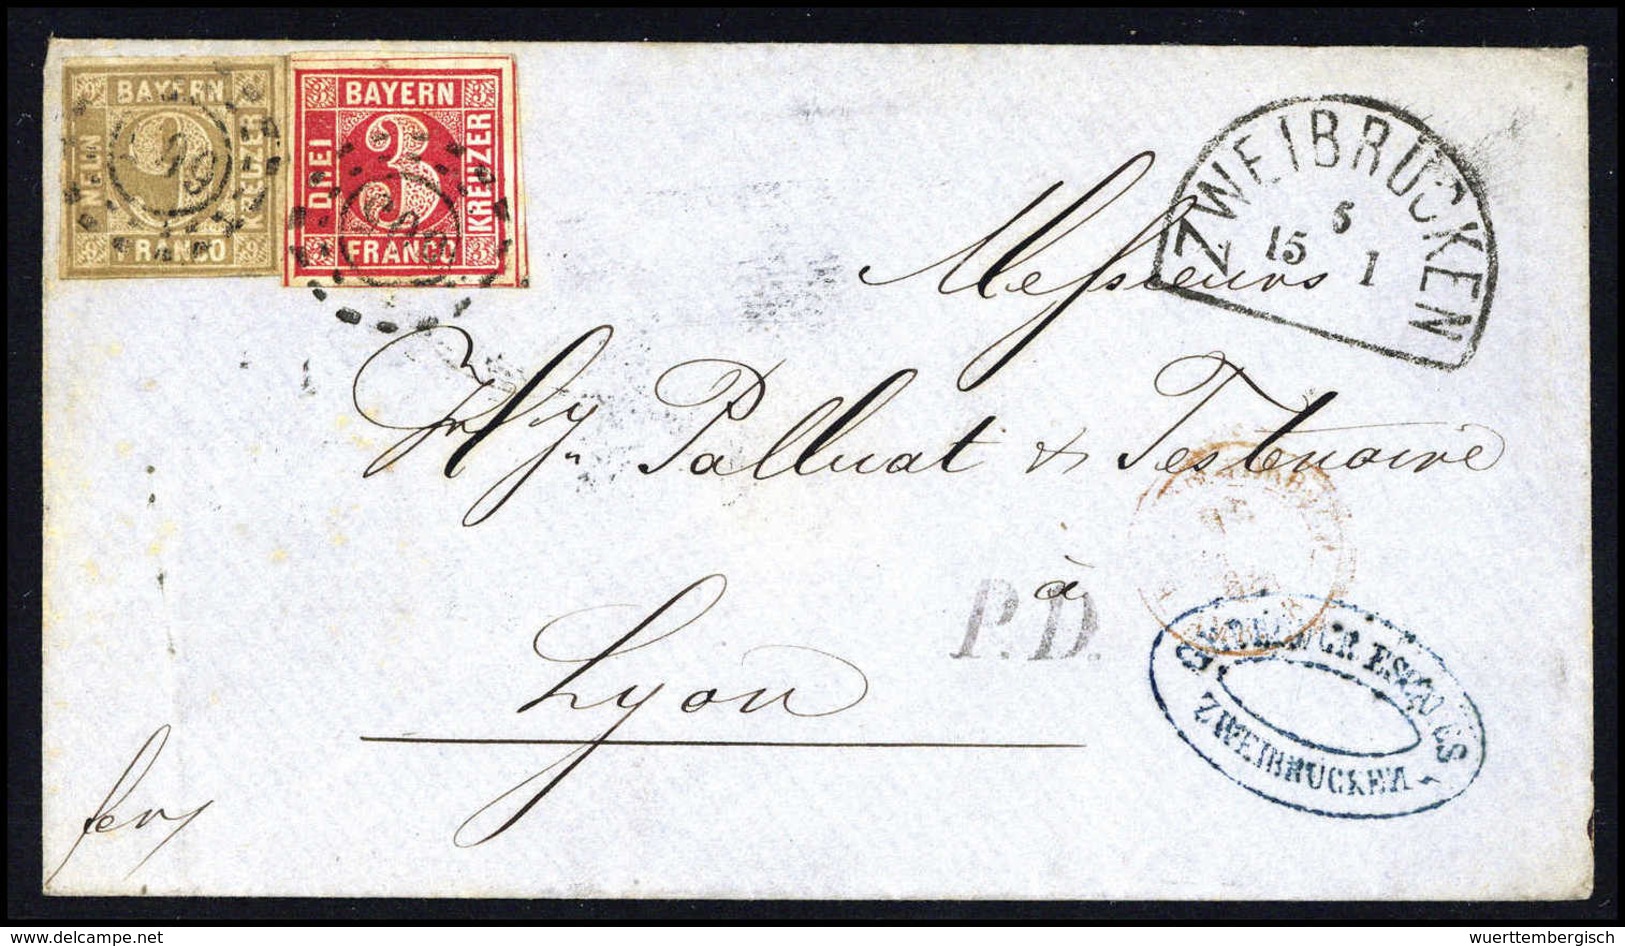 BAYERN
NEUN
FRANCO
9
BAYERN
DREI
3
KREUZER
FRANCO
ZWEIBRÜCKEN
6
15 1
Messieurs
Palluat & Testenoire
à
Lyon
P.D.
ZWEIBRÜCKEN
delcampe.net
wuerttembergisch